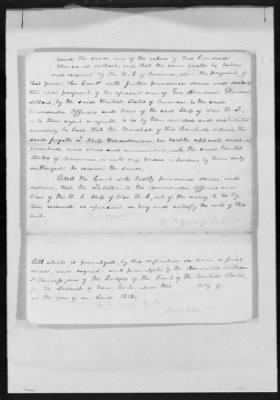 said the same, are of the value of Two Hundred
Thousand dollars, and that the same shall be taken
and received by the U. S. of America, upon the payment of
that price; this Court doth further pronounce decree and declare
that upon payment of the aforesaid sum of Two Hundred Thousand
dollars, by the said United States of America to the said
Commander Officers and Crew of the said Ship of War U. S.,
or to their agent or agents, to be by them divided and distributed
according to Law that the Marshal of this Court do deliver the
said frigate or Ship Macedonian, her tackle apparel arms
furniture, and stores and ammunition unto the said United
States of America, or unto any person or persons by them duly
authorized to receive the same.
And the Court doth lastly pronounce decree and
declare, that the Libellants the Commander Officers and
Crew of the U. S. Ship of War U. S. out of the money to be by
them received as aforesaid do pay and satisfy the costs of this
suit.
All which is promulged, by this definitive sentence or final
decree, read signed and promulged by the Honorable William
P. Van Ness, one of the Judges of the Court of the United States,
for the District of New York, upon this day of
in the year of our Lord 1813.